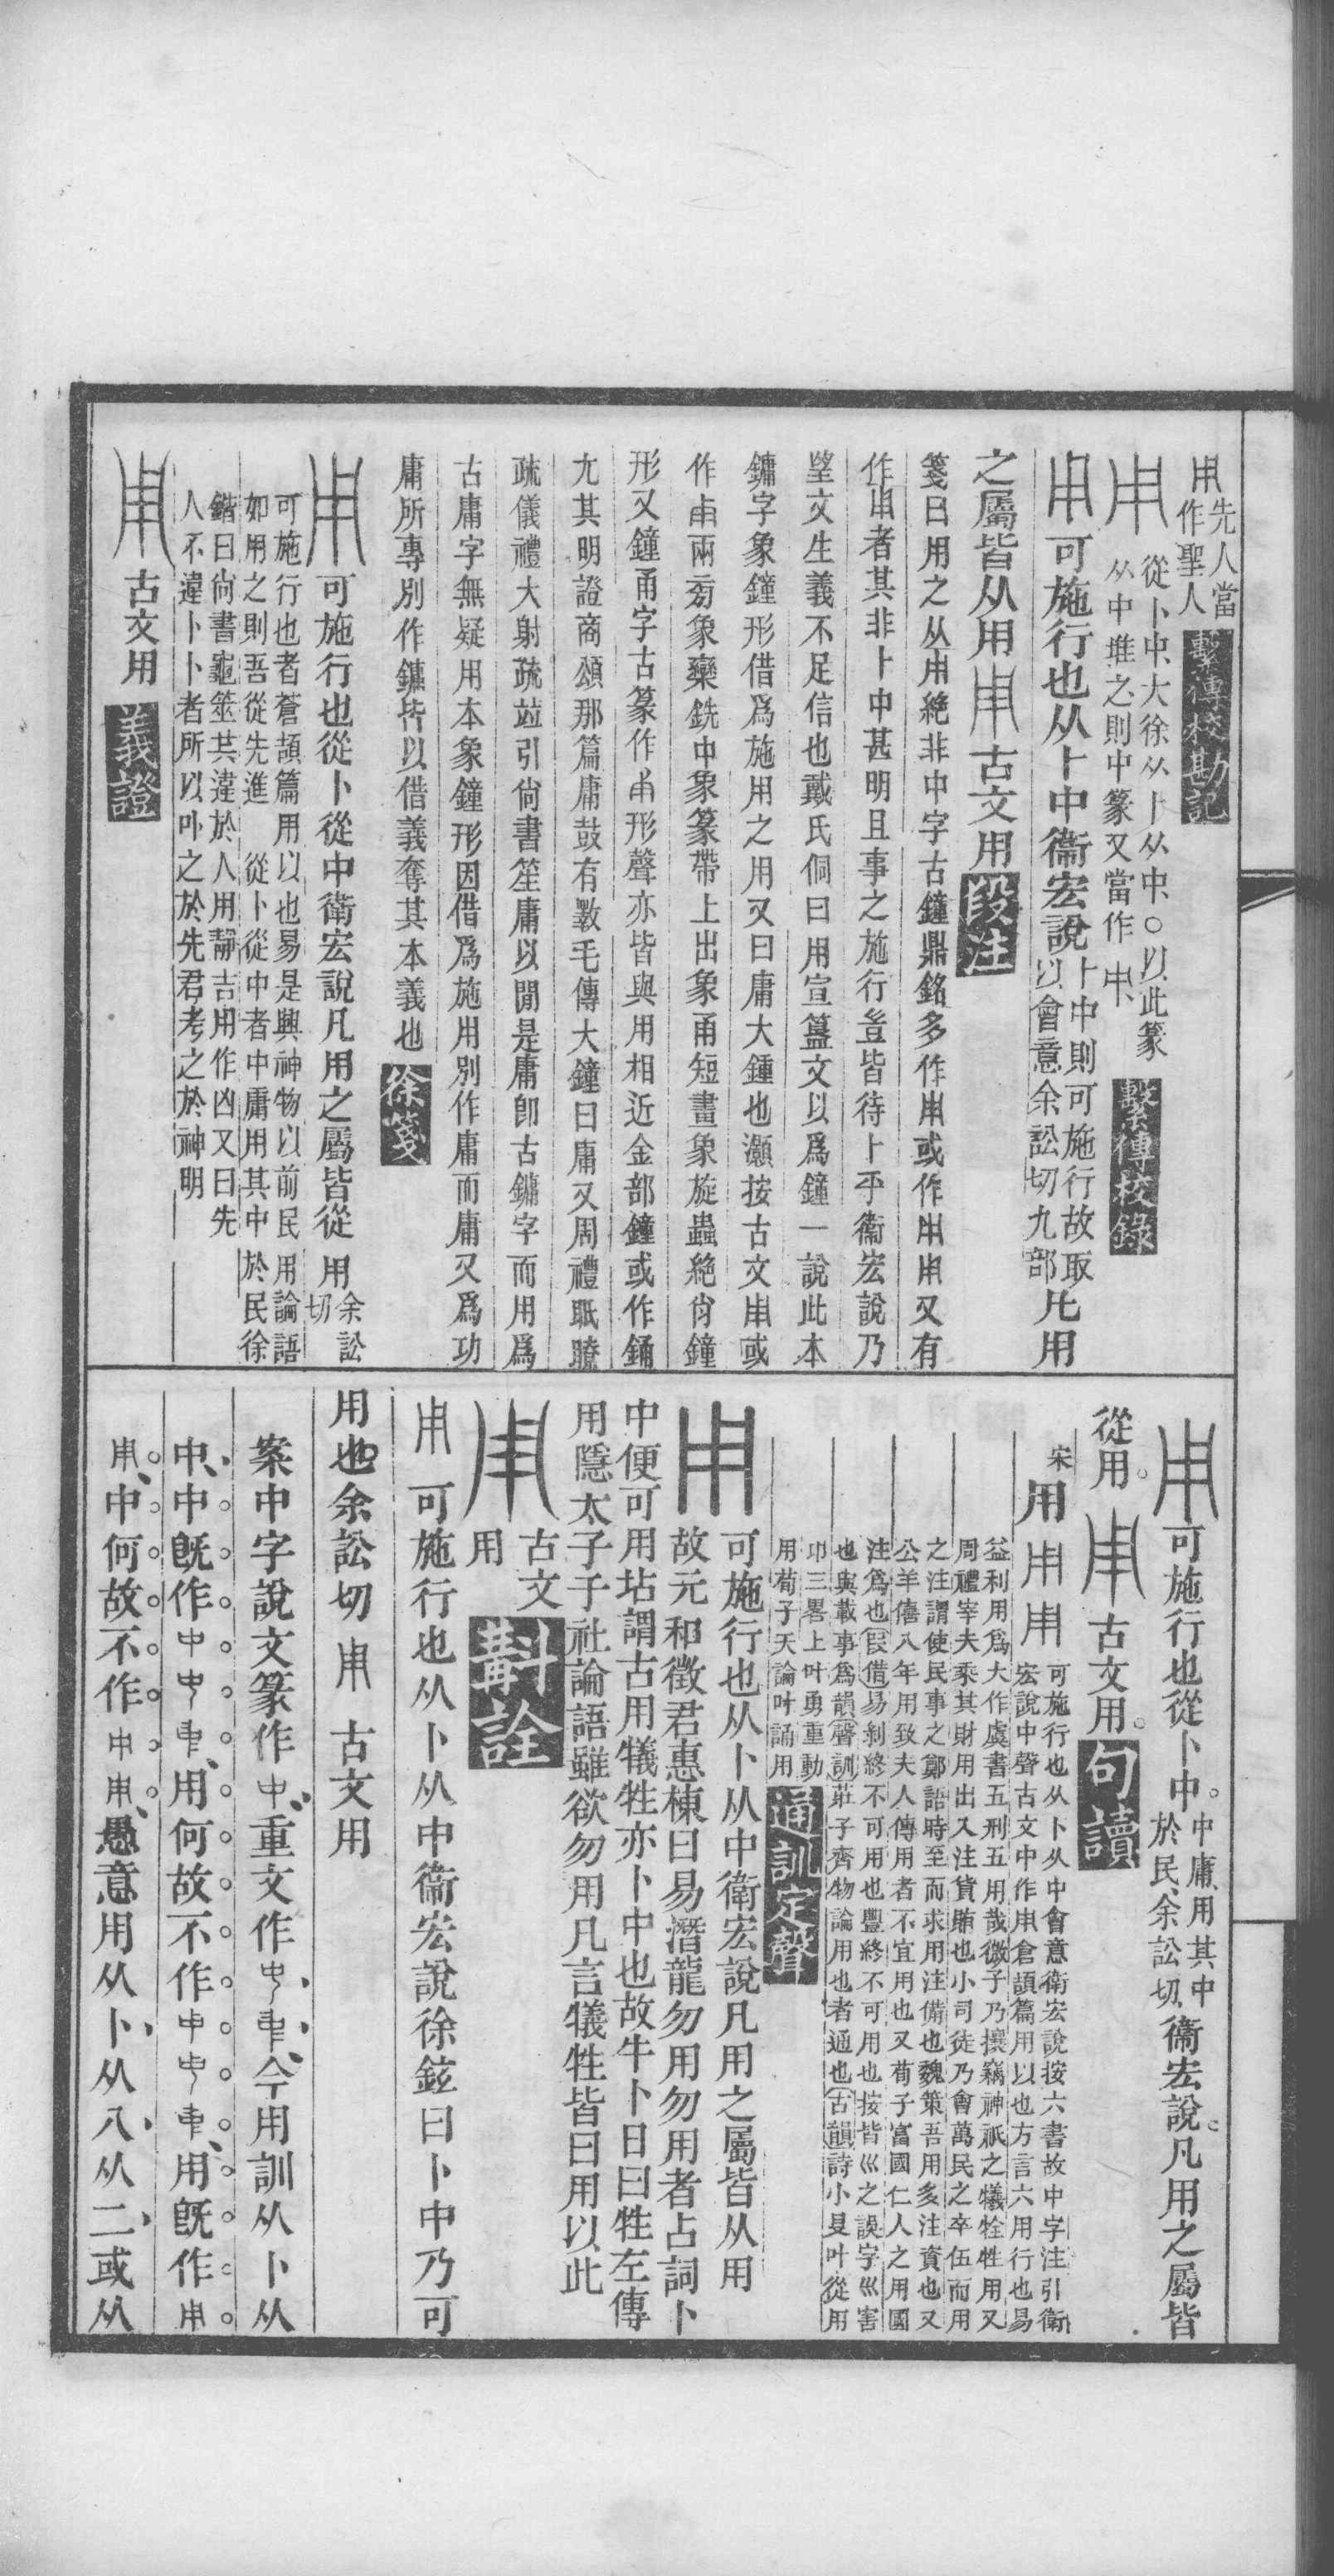 用先人當
作聖人 繫傳校勘記
用 從卜中大徐从卜从中○以此篆
从中推之則中篆又當作中 繫傳校錄
用 可施行也从卜中衞宏說卜中則可施行故取
以會意余訟切九部凡用
之屬皆从用 古文用 段注
箋曰用之从用絶非中字古鐘鼎銘多作用或作用用又有
作用者其非卜中甚明且事之施行豈皆待卜乎衞宏說乃
望文生義不足信也戴氏侗曰用宣簋文以爲鐘一說此本
鏞字象鐘形借爲施用之用又曰庸大鍾也灝按古文用或
作用兩旁象欒銑中象篆帶上出象甬短畫象旋蟲絶肖鐘
形又鐘甬字古篆作甬形聲亦皆與用相近金部鐘或作銿
尢其明證商頌那篇庸鼓有斁毛傳大鐘曰庸又周禮眂瞭
疏儀禮大射疏竝引尙書笙庸以閒是庸卽古鏞字而用爲
古庸字無疑用本象鐘形因借爲施用別作庸而庸又爲功
庸所專別作鏞皆以借義奪其本義也 徐箋
用 可施行也從卜從中衛宏說凡用之屬皆從用余訟
切
可施行也者蒼頡篇用以也易是興神物以前民用論語
如用之則吾從先進 從卜從中者中庸用其中於民徐
鍇曰尙書龜筮其違於人用靜吉用作凶又曰先
人不違卜卜者所以卟之於先君考之於神明
古文用 義證
用 可施行也從卜中中庸用其中
於民余訟切衞宏說凡用之屬皆
從用 古文用 句讀
宋 用 可施行也从卜从中會意衛宏說按六書故中字注引衛
宏說中聲古文中作用倉頡篇用以也方言六用行也易
益利用爲大作虞書五刑五用哉微子乃攘竊神祇之犧牷牲用又
周禮宰夫乘其財用出入注貨賄也小司徒乃會萬民之卒伍而用
之注謂使民事之鄭語時至而求用注備也魏策吾用多注資也又
公羊僖八年用致夫人傳用者不宜用也又荀子富國仁人之用國
注爲也叚借易剝終不可用也豐終不可用也按皆巛之誤字巛害
也與載事爲韻聲訓莊子齊物論用也者通也古韻詩小旻叶從用
邛三畧上叶勇重動
用荀子天論叶誦用 通訓定聲
用 可施行也从卜从中衛宏說凡用之屬皆从用
故元和徵君惠棟曰易潛龍勿用勿用者占詞卜
中便可用坫謂古用犧牲亦卜中也故牛卜日曰牲左傳
用隱太子子社論語雖欲勿用凡言犧牲皆曰用以此
古文
用 斠詮
用 可施行也从卜从中衞宏說徐鉉曰卜中乃可
用也余訟切 古文用
案中字說文篆作中重文作 今用訓从卜从
中中旣作 用何故不作 用旣作用
用中何故不作 愚意用从卜从八从二或从